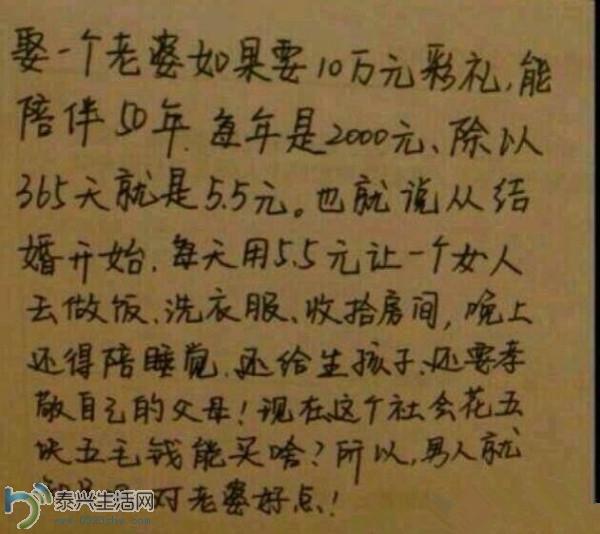 娶一个老婆如果要10万元彩礼,能
陪伴50年.每年是2000元、除以
365天就是5.5元。也就说从结
婚开始.每天用5.5元让一个女人
去做饭、洗衣服、收拾房间,晚上
还得陪睡觉.还给生孩子.还要孝
敬自己的父母!现在这个社会花五
块五毛钱能买啥?所以,男人就
对老婆好点!
泰兴生活网